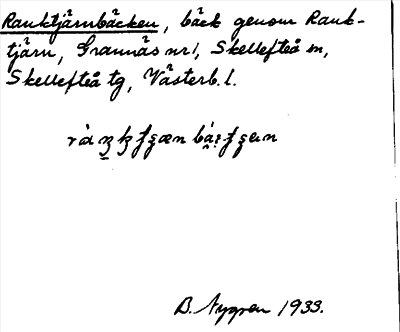 Ranktjärnbäcken, bäck genom Rank-
tjärn, Grannäs nr 1, Skellefteå sn,
Skellefteå tg, Västerb. l.
B. Nygren 1933.